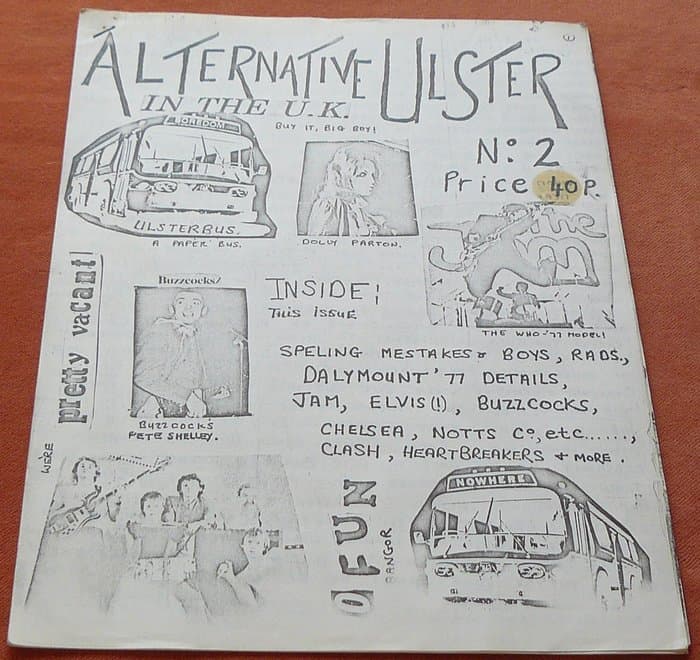 ALTERNATIVE ULSTER
IN THE U.K.
BUY IT, BIG BOY!
Nº 2
Price 40P.
BOREDOM
ULSTERBUS.
A PAPER BUS.
DOLLY PARTON.
the
THE WHO-'77 MODEL!
pretty vacant!
WE'RE
Buzzcocks/
BUZZCOCKS
PETE SHELLEY.
INSIDE!
THIS ISSUE
SPELING MESTAKES & BOYS, RADS.,
DALYMOUNT '77 DETAILS,
JAM, ELVIS(!), BUZZCOCKS,
CHELSEA, NOTTS Co, etc......,
CLASH, HEARTBREAKERS & MORE.
O FUN
BANGOR
NOWHERE